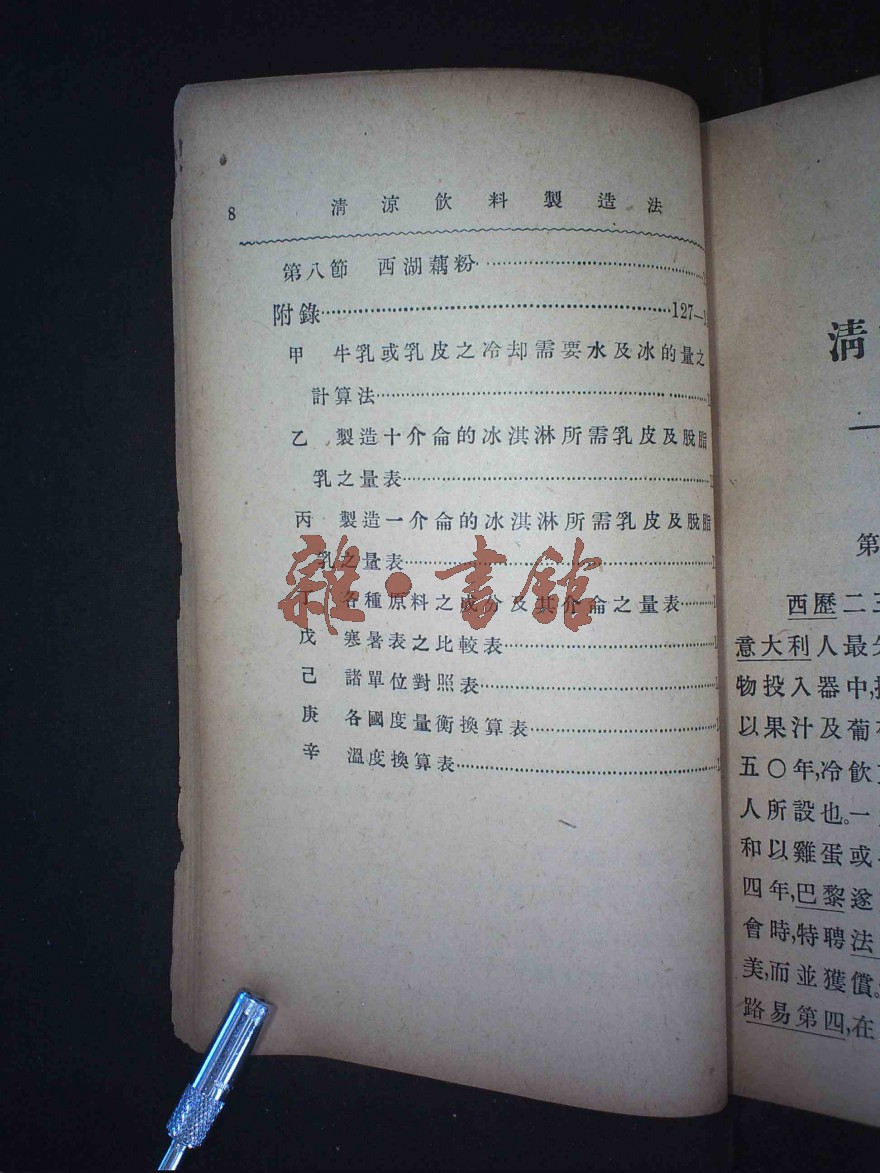 8 清涼飲料製造法
第八節 西湖藕粉
附錄 127—1
甲 牛乳或乳皮之冷却需要水及冰的量之
計算法 1
乙 製造十介侖的冰淇淋所需乳皮及脫脂
乳之量表 1
丙 製造一介侖的冰淇淋所需乳皮及脫脂
乳之量表 1
丁 各種原料之成分及其介侖之量表 1
戊 寒暑表之比較表 1
己 諸單位對照表 1
庚 各國度量衡換算表 1
辛 溫度換算表 1
雜·書館
清
第
西歷二三
意大利人最先
物投入器中,
以果汁及葡
五〇年,冷飲
人所設也。一
和以雞蛋或
四年,巴黎遂
會時,特聘法
美,而並獲償。
路易第四,在